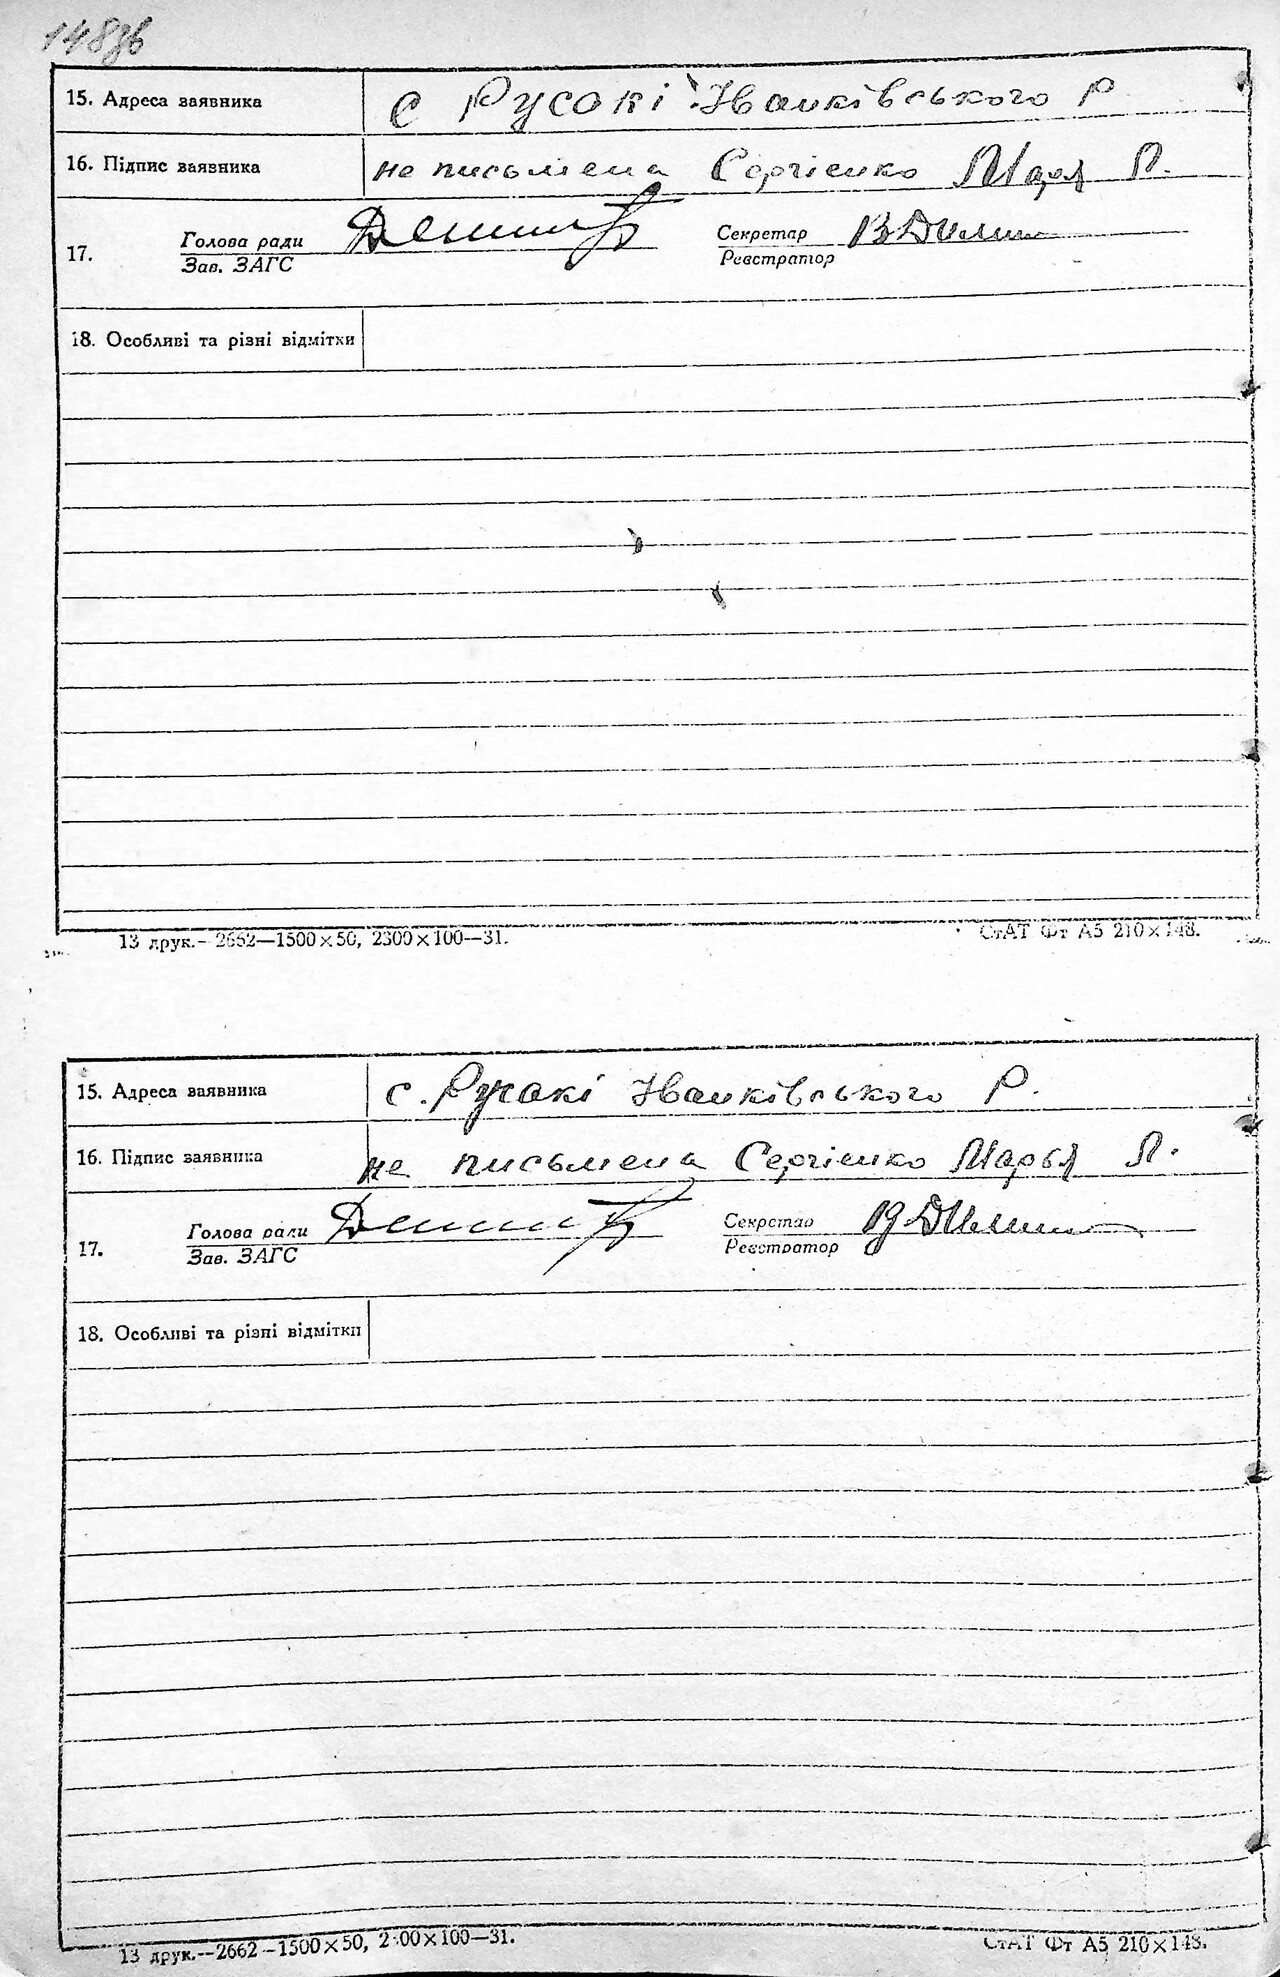 148зв
15. Адреса заявника с Русакі Іванківського Р
16. Підпис заявника не письмена Сергієнко Маря П.
17. Голова ради Секретар
Зав. ЗАГС Реєстратор
18. Особливі та різні відмітки
13 друк.—2652—1500×50, 2300×100—31. СтАТ Фт А5 210×148.
15. Адреса заявника с. Русакі Іванківського Р.
16. Підпис заявника не письмена Сергієнко Марья П.
17. Голова ради Секретар
Зав. ЗАГС Реєстратор
18. Особливі та різні відмітки
13 друк.—2662—1500×50, 2300×100—31. СтАТ Фт А5 210×148.